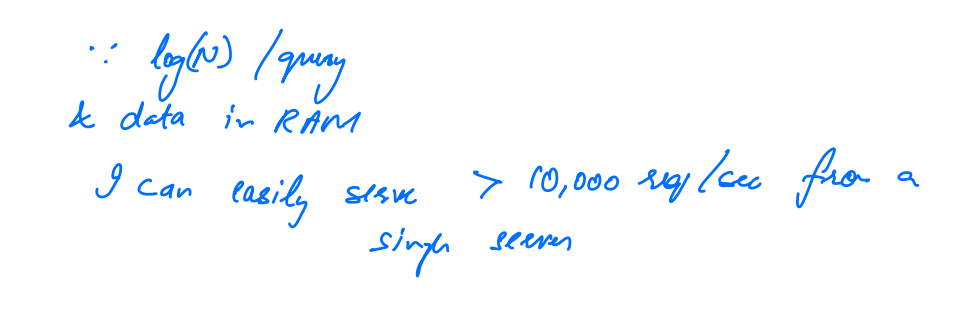 ∵ log(N) /query
& data in RAM
I can easily serve > 10,000 req/sec from a
single server